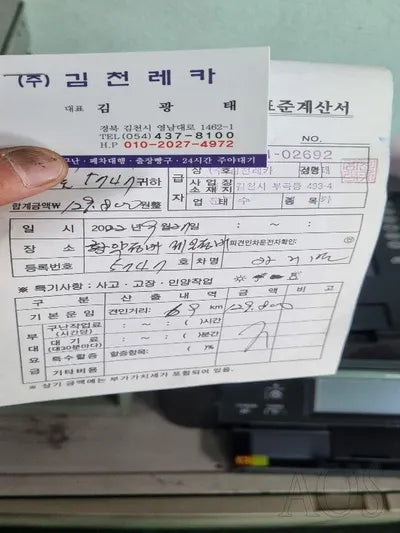 (주) 김천레카
대표 김 광 태
경북 김천시 영남대로 1462-1
TEL(054) 437-8100
H.P 010-2027-4972
구난 · 폐차대행 · 출장빵구 · 24시간 주야대기
표준계산서
NO.
-02692
5747 귀하
합계금액₩ 129.800 원整
공급자
상호 (주)김천레카 성명
사업장소재지 김천시 부곡동 493-4
업태 종목
일 시 2022년 9월 27일
장 소 (피견인차운전자확인)
등록번호 5747 호 차명
※ 특기사항 : 사고 · 고장 · 인양작업
구 분 산 출 내 역 금 액 비 고
기본운임 견인거리: 69 km 129.800
부대요금
구난작업료 (시간당) : ~ : ( )시간
대기료 (대30분마다) : ~ : ( )분간
특수할증 할증항목: ( )%
기타비용
※ 상기 금액에는 부가가치세가 포함되어 있음.
AOS